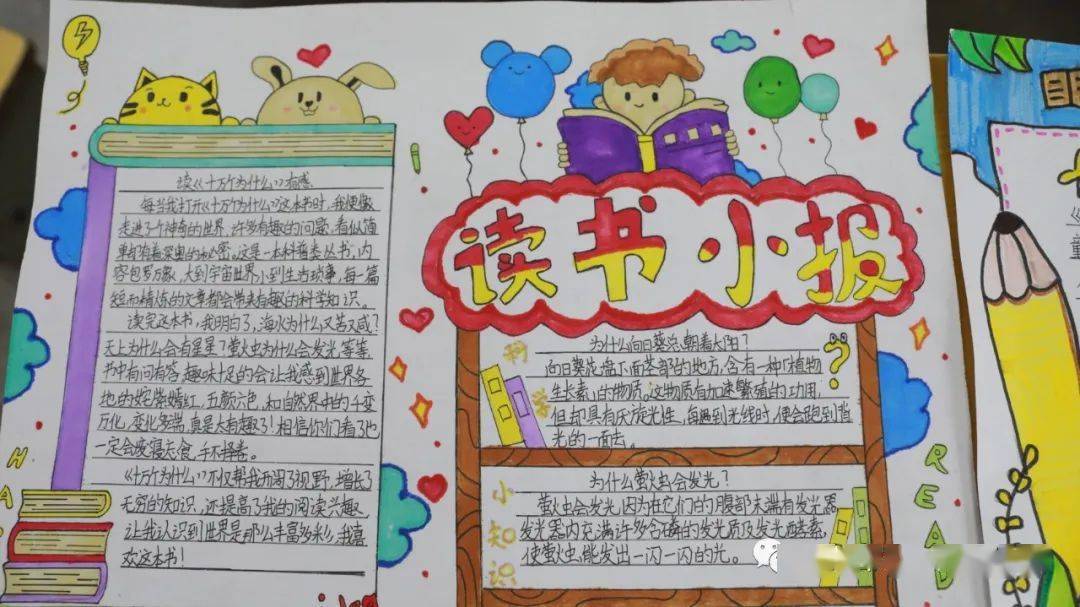 读书小报
读《十万个为什么》有感
每当我打开《十万个为什么》这本书时,我便像
走进了个神奇的世界,许多有趣的问题,看似简
单却有着深奥的秘密。这是一本科普类丛书,内
容包罗万象,大到宇宙世界,小到生活琐事,每一篇
短而精炼的文章都会带来有趣的科学知识。
读完这本书,我明白了,海水为什么又苦又咸?
天上为什么会有星星?萤火虫为什么会发光等等,
书中有问有答,趣味十足的会让我感到世界各
地的姹紫嫣红,五颜六色,和自然界中的千变
万化,变化多端,真是太有趣了!相信你们看了也
一定会废寝忘食,手不择卷。
《十万个为什么》不仅帮我开阔了视野,增长了
无穷的知识,还提高了我的阅读兴趣,
让我认识到世界是那么丰富多彩,我喜
欢这本书!
科学
小知识
为什么向日葵总朝着太阳?
向日葵花盘下面茎部的地方,含有一种“植物
生长素”的物质。这物质有加速繁殖的功用,
但却具有厌旋光性,每遇到光线时,便会跑到背
光的一面去。
为什么萤火虫会发光?
萤火虫会发光,因为在它们的腹部末端有发光器,
发光器内充满许多含磷的发光质及发光酵素,
使萤火虫能发出一闪一闪的光。
READ